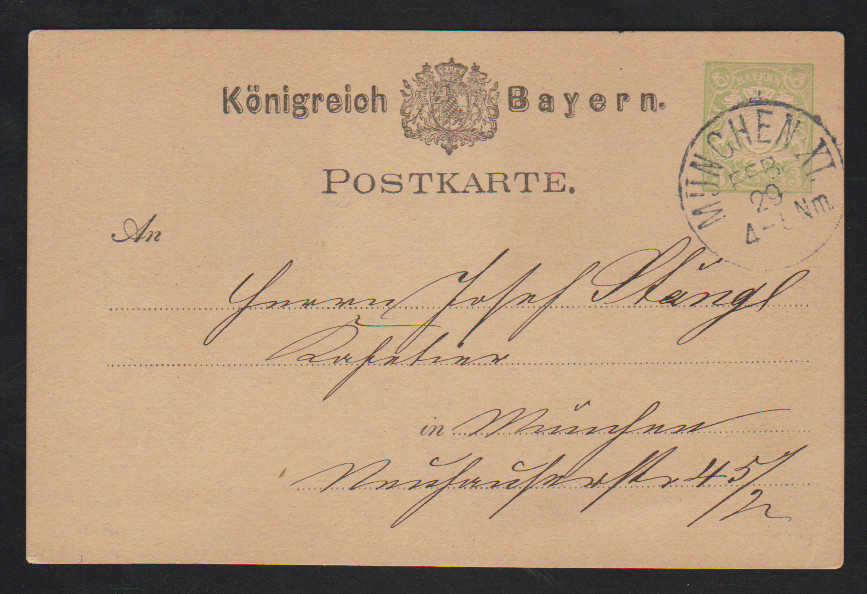 Königreich Bayern.
POSTKARTE.
BAYERN
MÜNCHEN XI.
FEB.
29
4-5 Nm.
An
Herrn Josef Stängl
Kafetier
in München
Neuhauserstr. 45/2